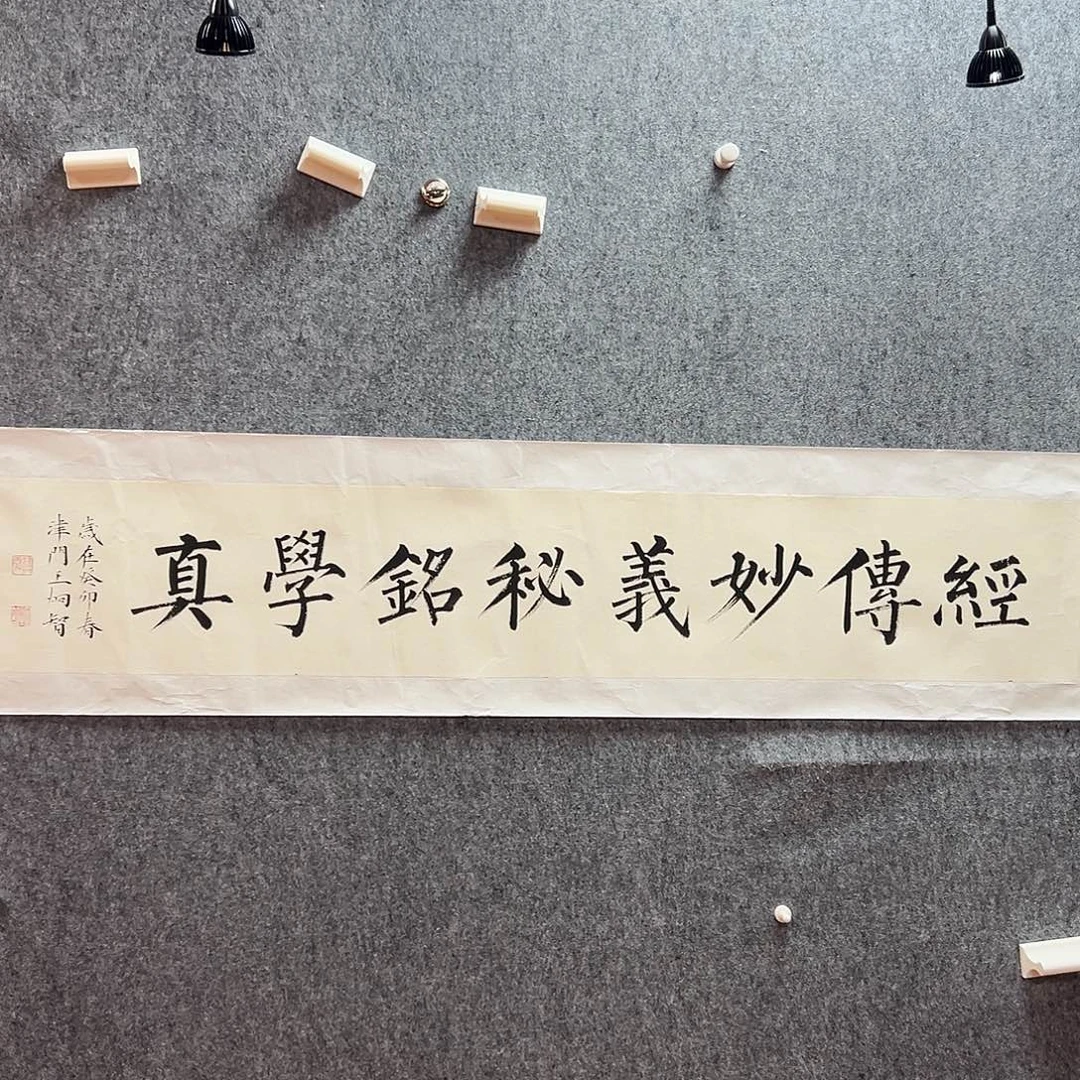 經傳妙義秘銘學真
歲在癸卯春
津門王焗智